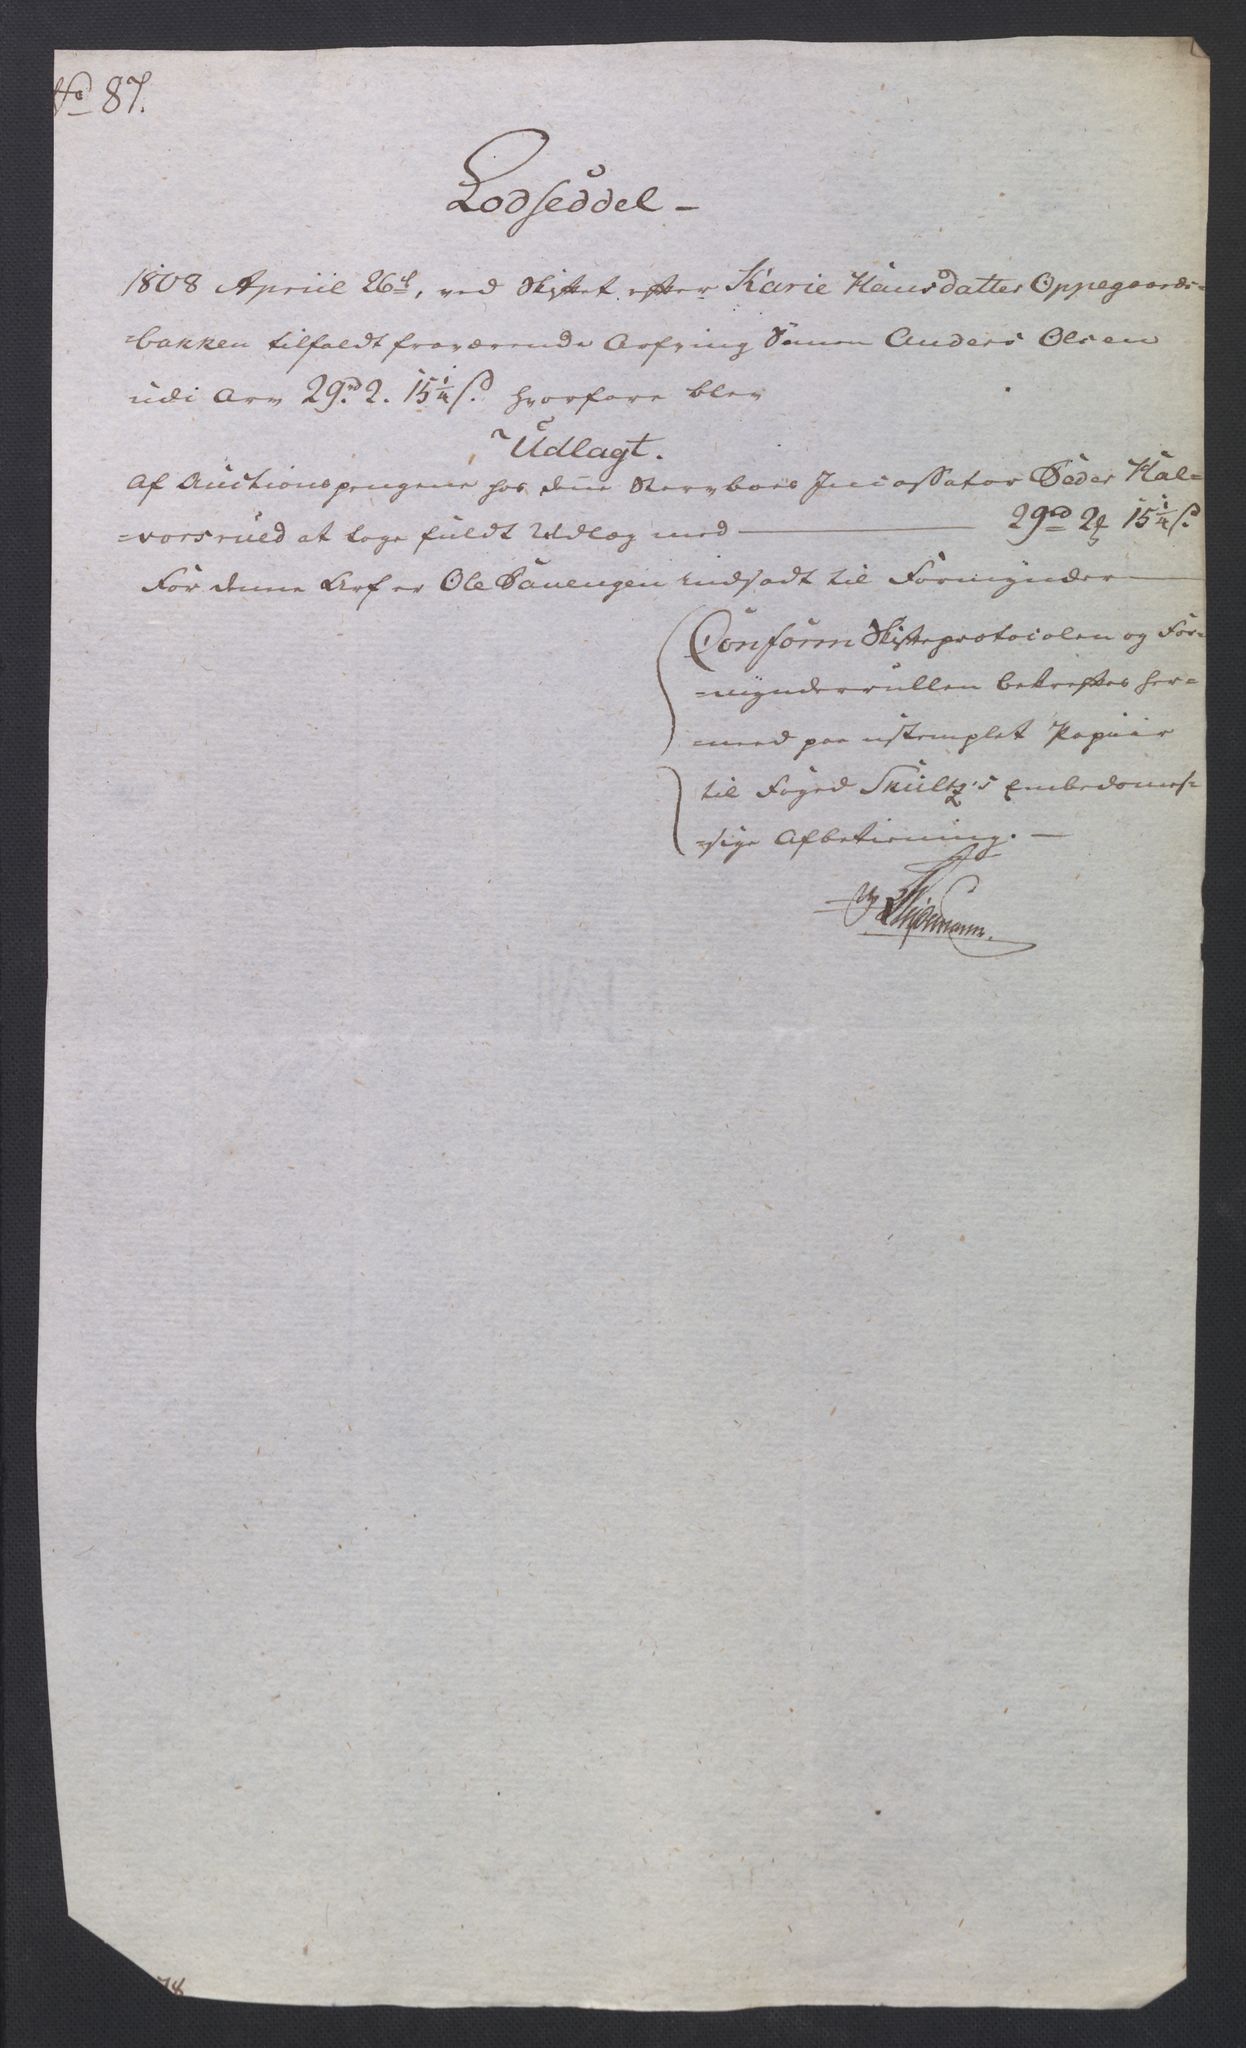 No 87.
Lodseddel -
1808 Apriil 26de, ved Skiftet efter Karie Hansdatter Oppegaards-
=bakken tilfaldt fraværende Arfving Sønen Anders Olsen
udi Arv 29rd. 2. 15¼ s. hvorfore blev
Udlagt.
Af Auctionspengene hos dene Stervboes Incassator Peder Hal=
=vorsrued at tage fuldt Udlæg med — 29rd 2 15¼ s.
For denne Arf er Ole indsadt til Formynder —
Conform Skifteprotocolen og For=
=mynderrullen bekreftes her=
=med paa ustemplet Papiir
til Foged Skultz's Embedsmes=
=sige Afbetiening. —
78